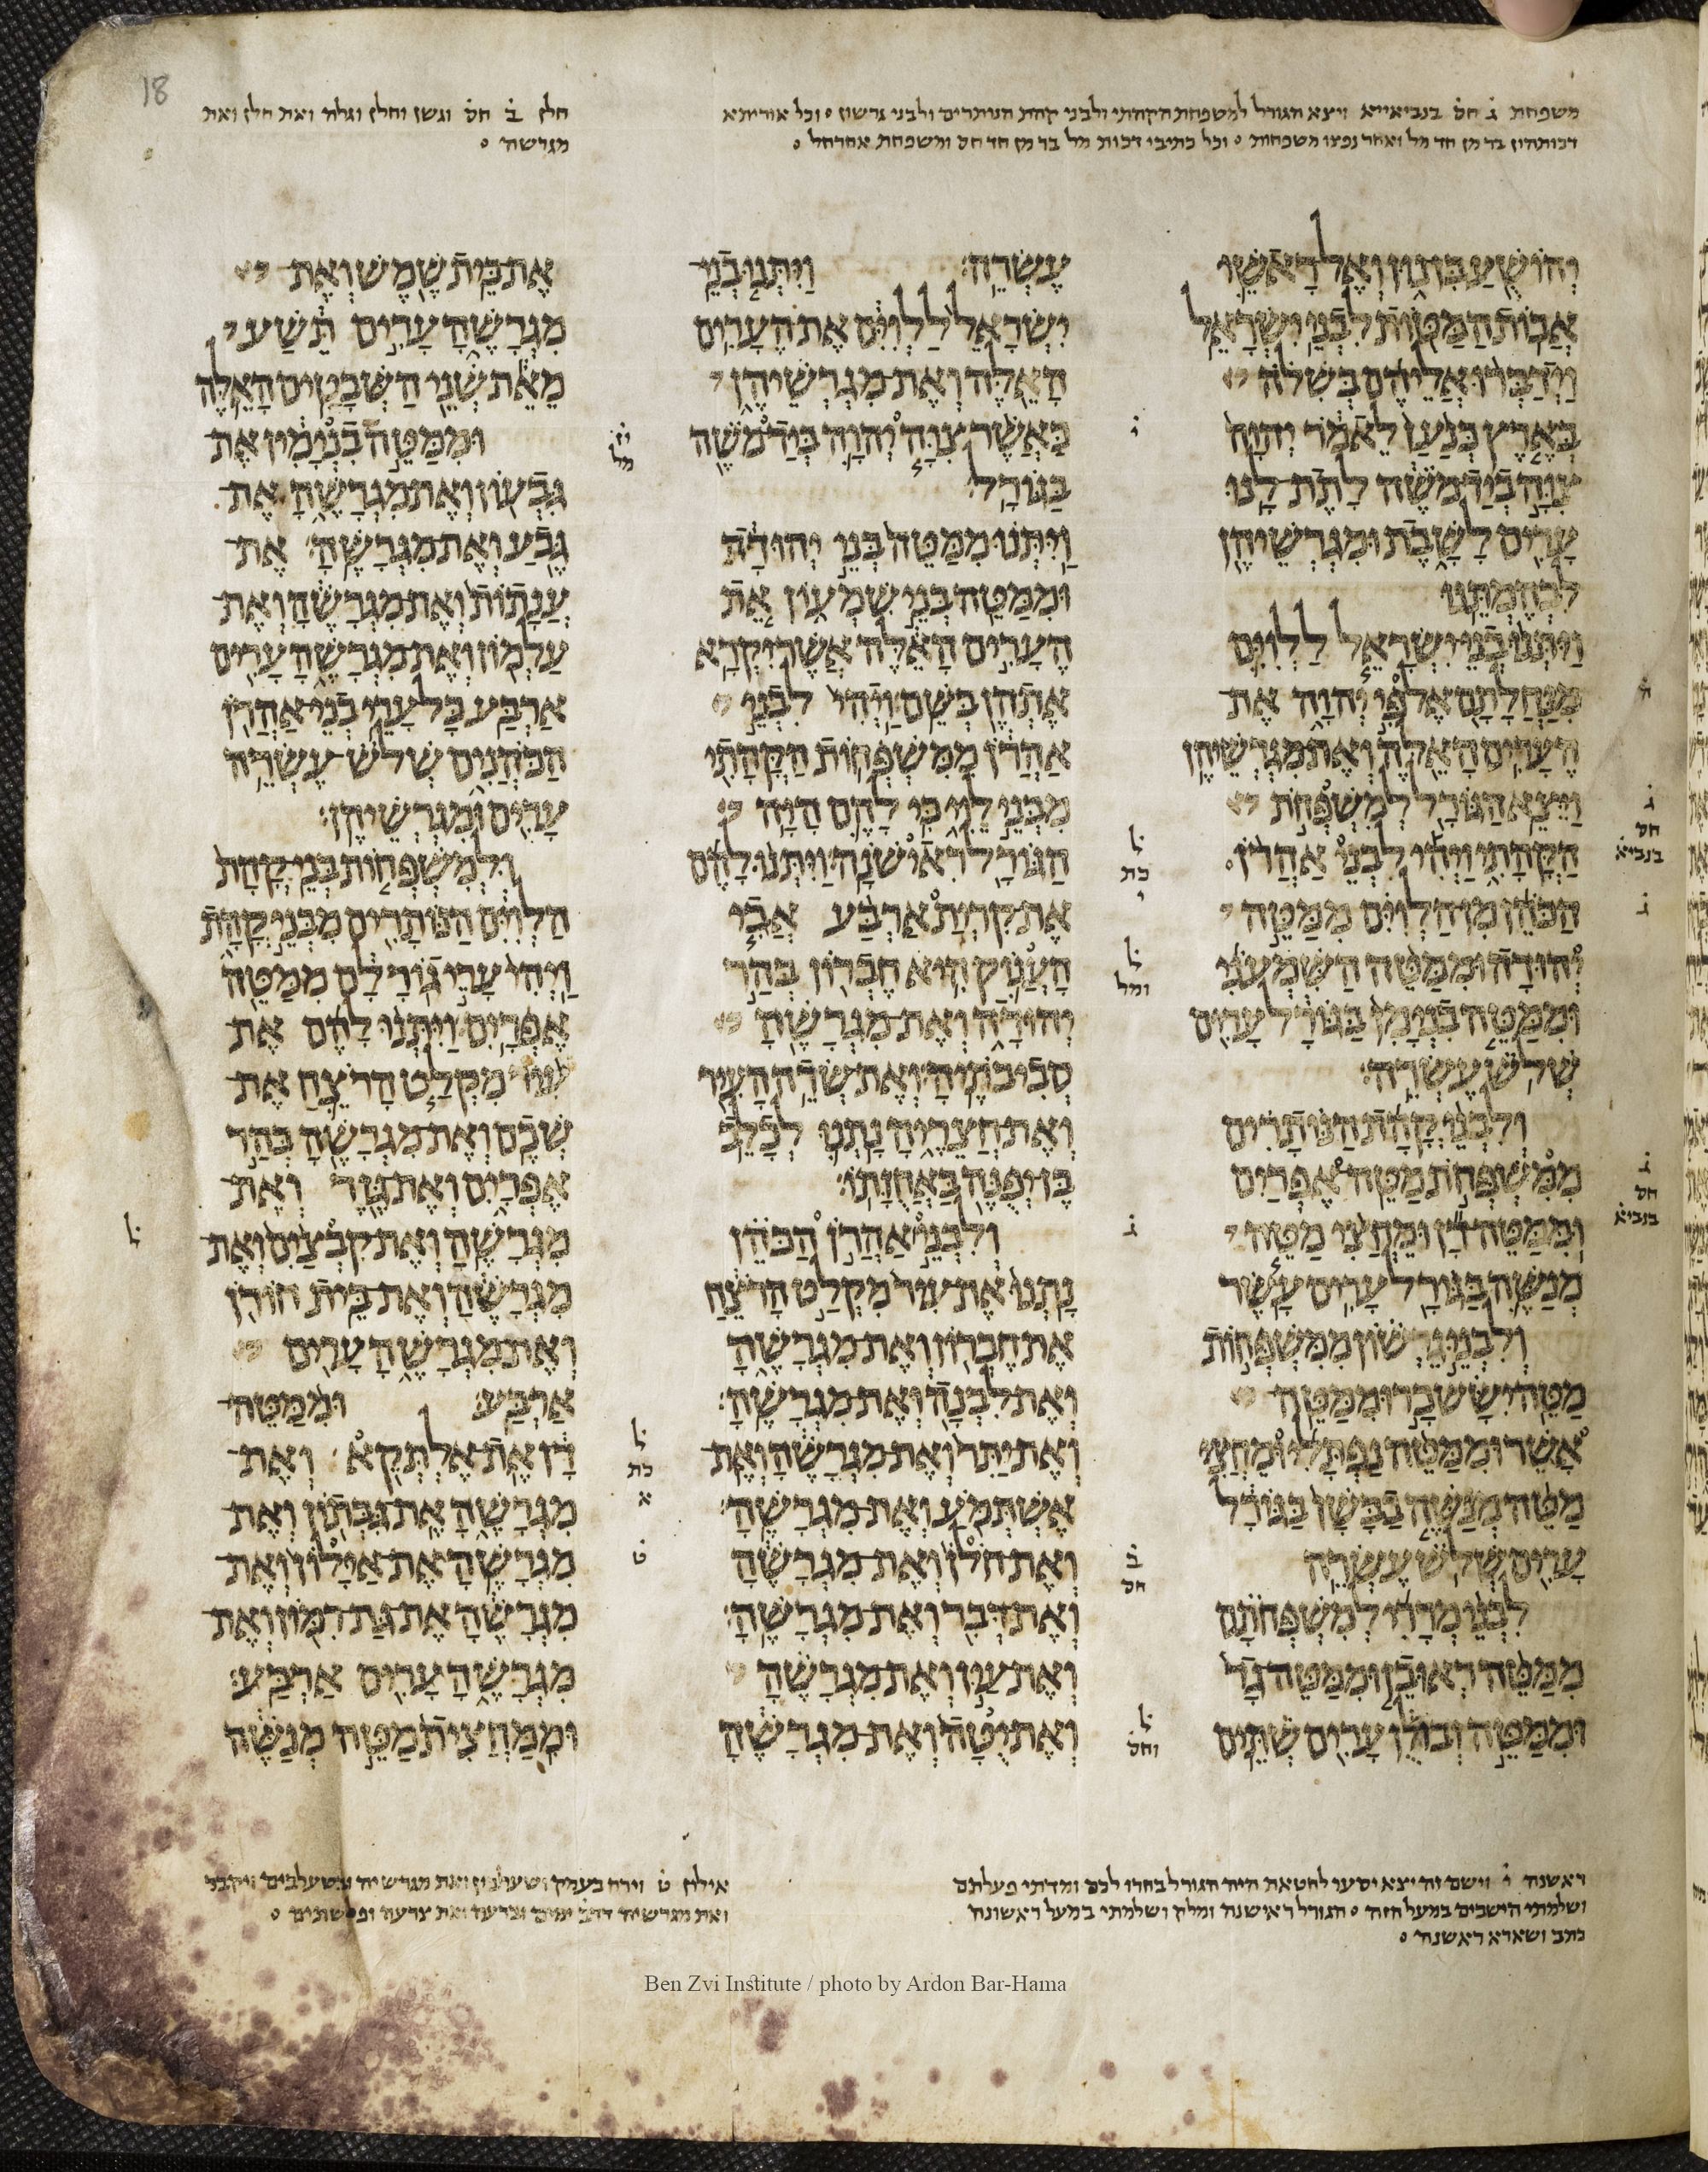 18
משפחת ג חס בנביאייא ויצא הגורל למשפחת הקהתי ולבני קהת הנותרים ולבני גרשון וכל אוריתא
דכותהון בד מן חד מל ואחר נפצו משפחות וכל כתיבי דכות מל בד מן חד חס ומשפחת אחרחל
חלן ב חס וגשן וחלן וגלה ואת חלן ואת
מגרשה
יהושע בן נון ואל ראשי
אבות המטות לבני ישראל
וידברו אליהם בשלה
בארץ כנען לאמר יהוה
צוה ביד משה לתת לנו
ערים לשבת ומגרשיהן
לבהמתנו
ויתנו בני ישראל ללוים
מנחלתם אל פי יהוה את
הערים האלה ואת מגרשיהן
ויצא הגורל למשפחת
הקהתי ויהי לבני אהרן
הכהן מן הלוים ממטה
יהודה וממטה השמעני
וממטה בנימן בגורל ערים
שלש עשרה
ולבני קהת הנותרים
ממשפחת מטה אפרים
וממטה דן ומחצי מטה
מנשה בגורל ערים עשר
ולבני גרשון ממשפחות
מטה יששכר וממטה
אשר וממטה נפתלי ומחצי
מטה מנשה בבשן בגורל
ערים שלש עשרה
לבני מררי למשפחתם
ממטה ראובן וממטה גד
וממטה זבולן ערים שתים
עשרה ויתנו בני
ישראל ללוים את הערים
האלה ואת מגרשיהן
כאשר צוה יהוה ביד משה
בגורל
ויתנו ממטה בני יהודה
וממטה בני שמעון את
הערים האלה אשר יקרא
אתהן בשם ויהי לבני
אהרן ממשפחות הקהתי
מבני לוי כי להם היה
הגורל ראישנה ויתנו להם
את קרית ארבע אבי
הענוק היא חברון בהר
יהודה ואת מגרשה
סביבתיה ואת שדה העיר
ואת חצריה נתנו לכלב
בן יפנה באחזתו
ולבני אהרן הכהן
נתנו את עיר מקלט הרצח
את חברון ואת מגרשה
ואת לבנה ואת מגרשה
ואת יתר ואת מגרשה ואת
אשתמע ואת מגרשה
ואת חלן ואת מגרשה
ואת דבר ואת מגרשה
ואת עין ואת מגרשה
ואת יטה ואת מגרשה
את בית שמש ואת
מגרשה ערים תשע
מאת שני השבטים האלה
וממטה בנימין את
גבעון ואת מגרשה את
גבע ואת מגרשה את
ענתות ואת מגרשה ואת
עלמון ואת מגרשה ערים
ארבע כל ערי בני אהרן
הכהנים שלש עשרה
ערים ומגרשיהן
ולמשפחות בני קהת
הלוים הנותרים מבני קהת
ויהי ערי גורלם ממטה
אפרים ויתנו להם את
עיר מקלט הרצח את
שכם ואת מגרשה בהר
אפרים ואת גזר ואת
מגרשה ואת קבצים ואת
מגרשה ואת בית חורן
ואת מגרשה ערים
ארבע וממטה
דן את אלתקא ואת
מגרשה את גבתון ואת
מגרשה את אילון ואת
מגרשה את גת רמון ואת
מגרשה ערים ארבע
וממחצית מטה מנשה
ראשנה י וישם זה יצא יסעו לחטאת היה הגורל בחרו לכם ומדתי פעלתם
ושלמתי הישבים במעל חזה הגורל ראישנה ומלק ושלמתי במעל ראשונה
כתב ושארא ראשנה
אילון ט וירח בעמק ושעלבין ואת מגרשיה ובשעלבים ויקבר
ואת מגרשיה דדב ימים וצרעה ואת צרעה ופלשתים
Ben Zvi Institute / photo by Ardon Bar-Hama